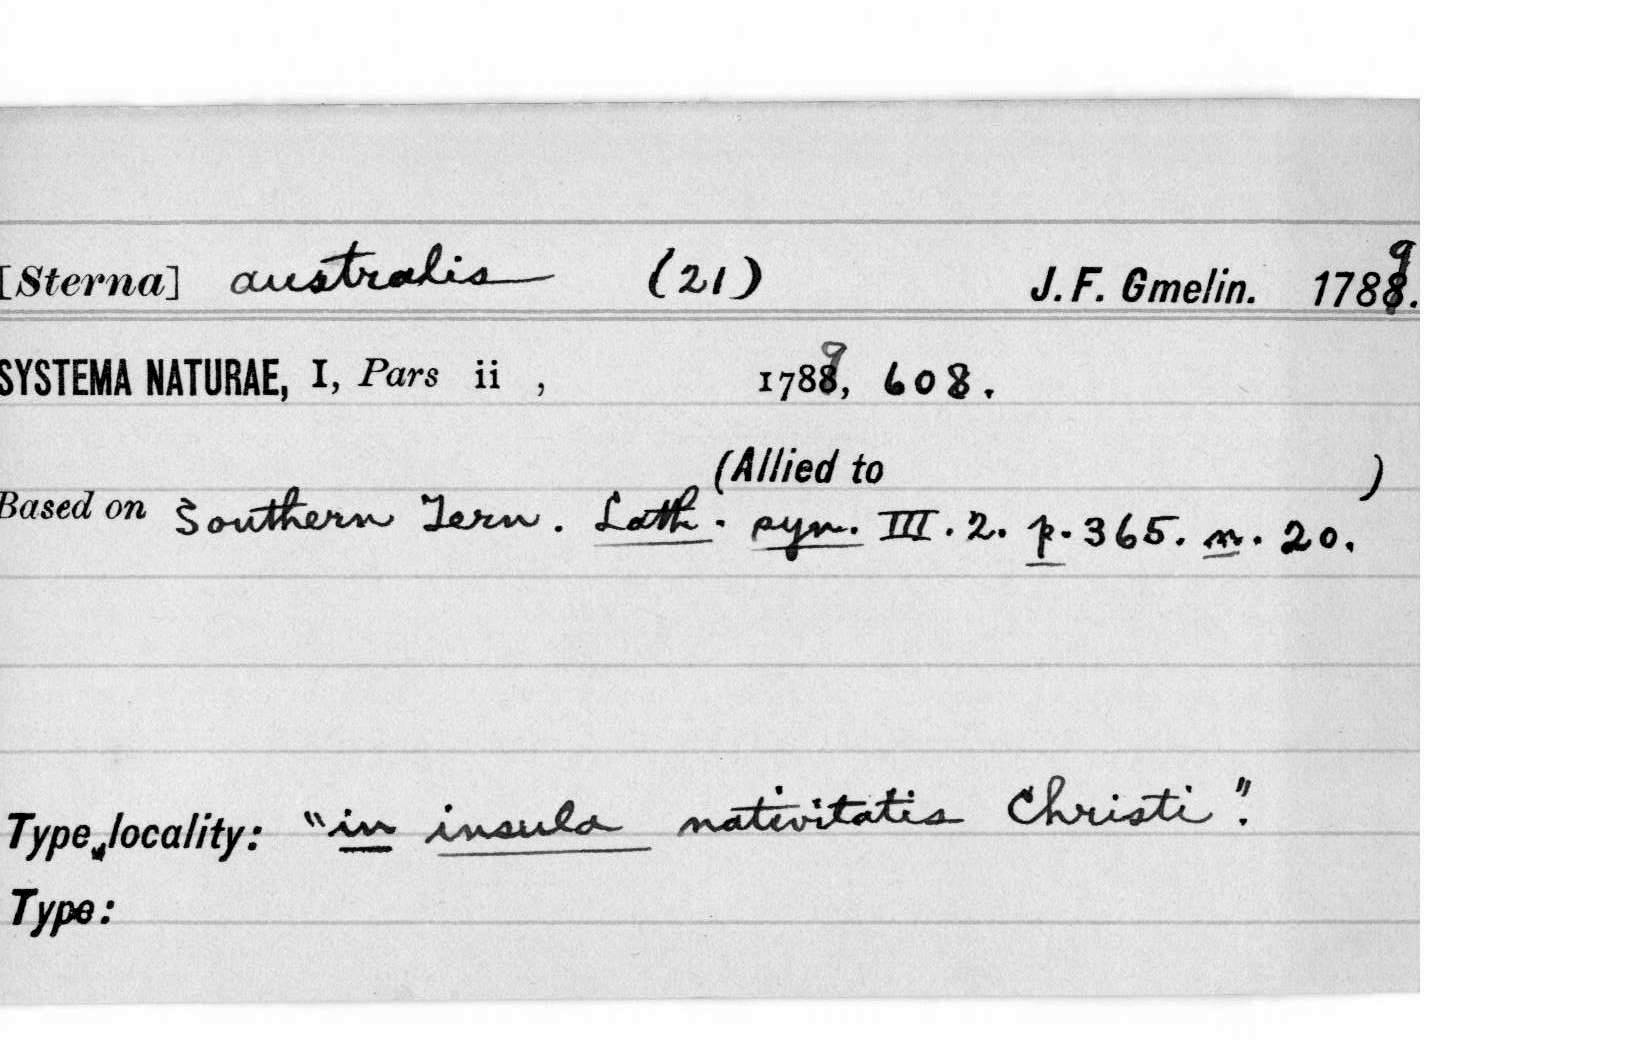 [Sterna] australis (21) J. F. Gmelin. 1789.
SYSTEMA NATURAE, I, Pars ii , 1789, 608.
(Allied to )
Based on Southern Tern. Lath. syn. III. 2. p. 365. n. 20.
Type locality: "in insula nativitatis Christi".
Type: